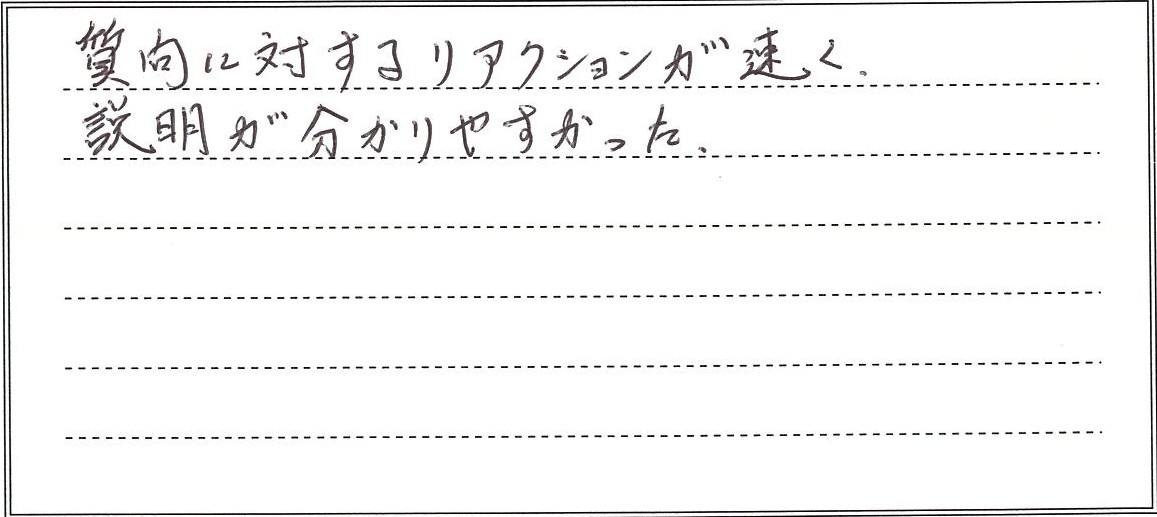 質問に対するリアクションが速く、
説明が分かりやすかった。